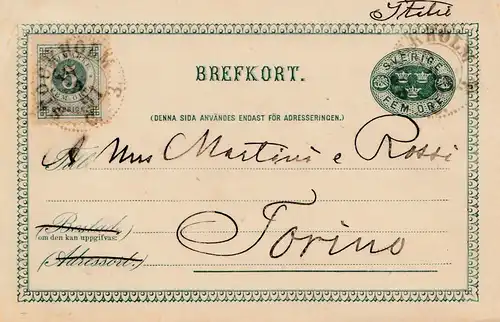 Italie
STOCKHOLM
BREFKORT.
SVERIGE
FEM ÖRE
(DENNA SIDA ANVÄNDES ENDAST FÖR ADRESSERINGEN.)
A Mrss Martini e Rossi
(Bostad,
om den kan uppgifvas:
Torino
(Adressort.)